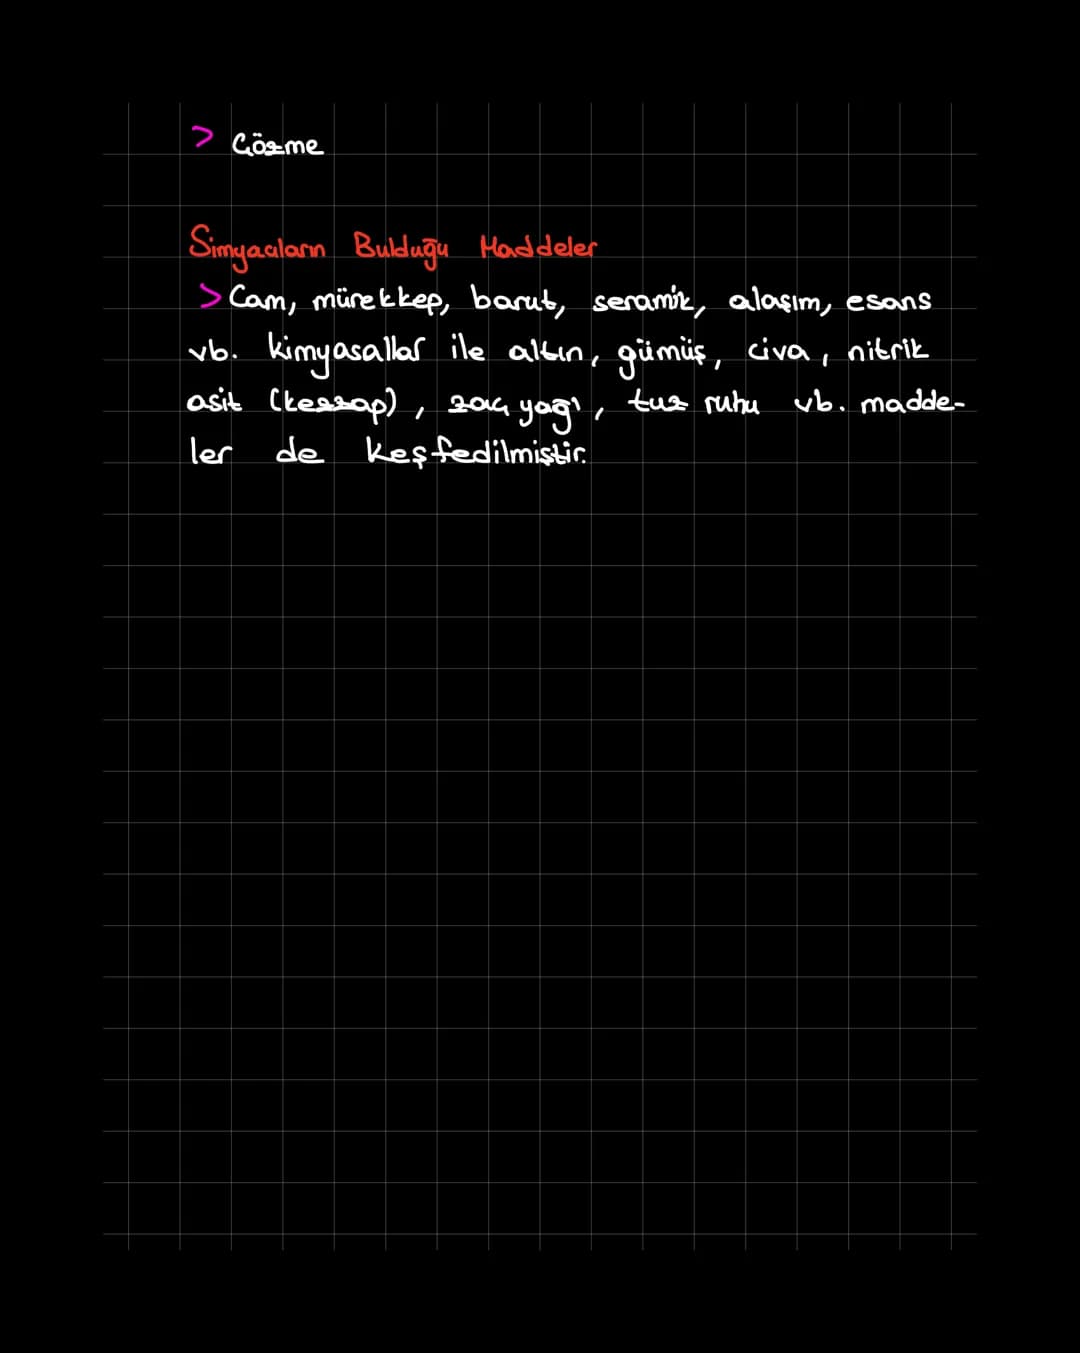 > Çözme
Simyacıların Bulduğu Maddeler
> Cam, mürekkep, barut, seramik, alaşım, esans
vb. kimyasallar ile altın, gümüş, civa, nitrik
asit (kezzap), zaç yağı, tuz ruhu vb. madde-
ler de keşfedilmiştir.